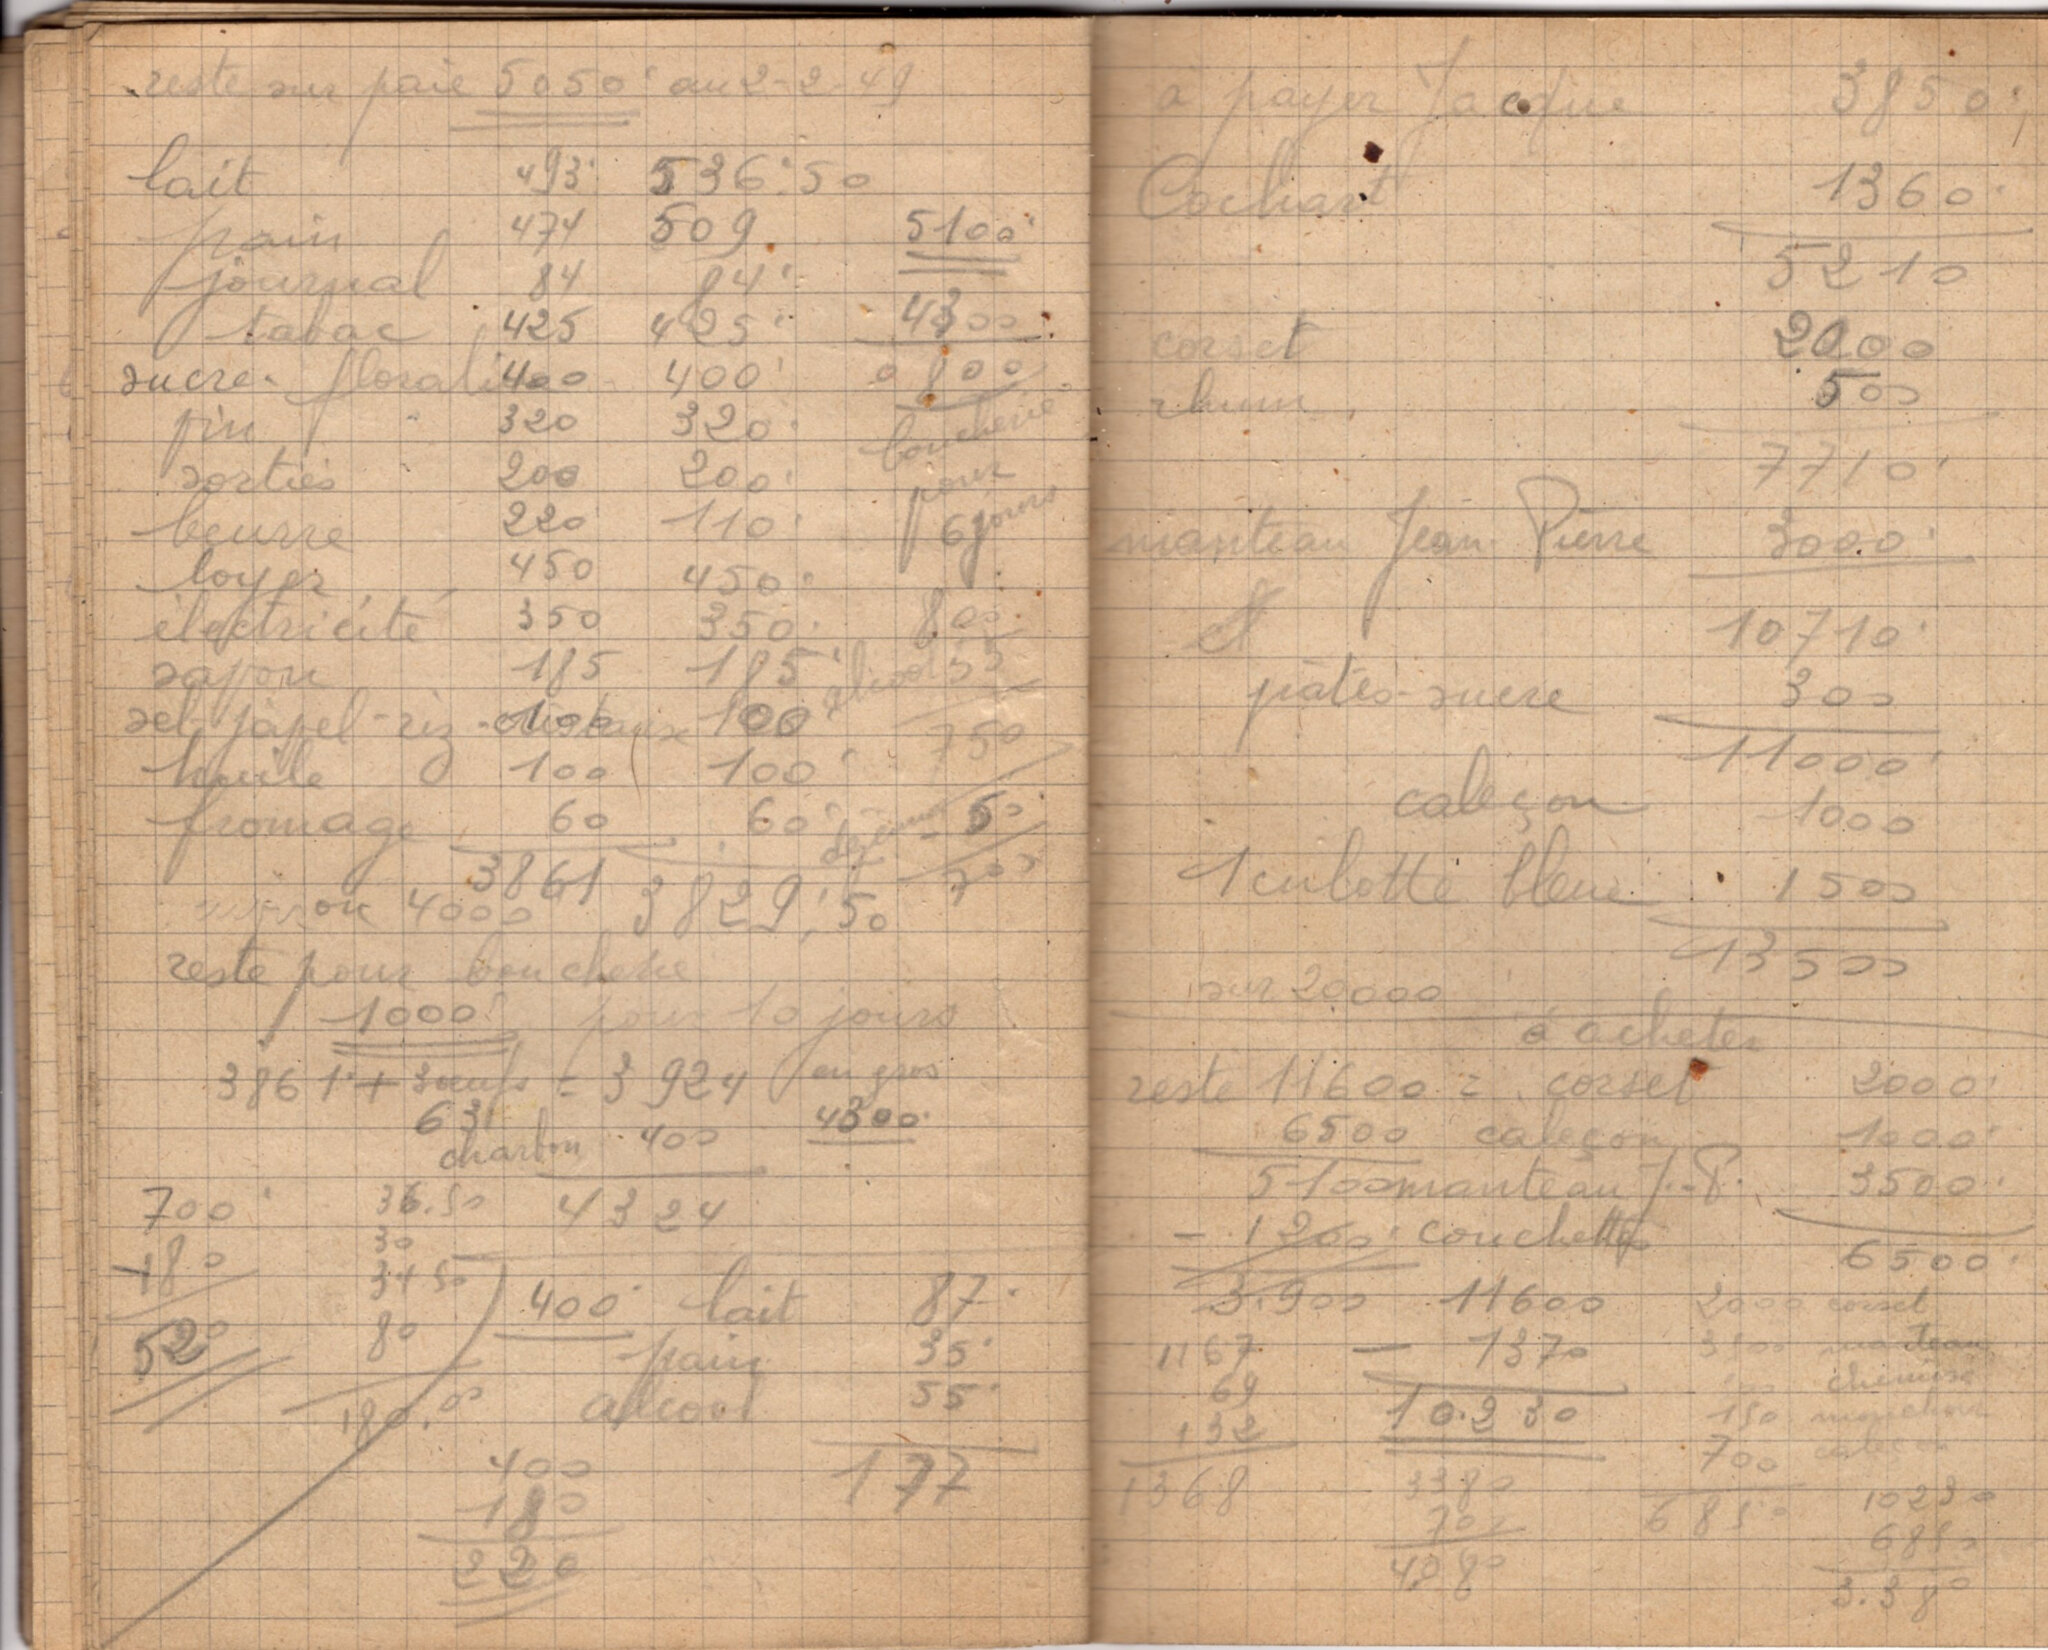 reste sur paie 5050' au 2-2-49
lait 493' 536'.50
pain 474 509 5100'
journal 84 84'
tabac 425 425' 4300
sucre - 400 400' 800
fin 320 320' boucherie
sorties 200 200' pour
beurre 220 110' 6 jours
loyer 450 450'
électricité 350 350' 800'
savon 185 185' alcool 55
sel - papel - riz - cristaux 100 100
750
huile 100 100'
fromage 60 60' déjeuner - 50
3861 3829',50 700
4000
reste pour boucherie
1000' pour 10 jours
3861' + 3 oeufs = 3924 en gros
63' 4300'
charbon 400
700' 36.50 4324
180 30
34 50
520 80 400' lait 87'
pain 35'
180.00 alcool 55'
177
400
180
220
à payer Jacque 3850'
Cochart 1360'
5210
corset 2000
rhum 500
7710'
manteau Jean Pierre 3000'
10710'
pâtes - sucre 300
11000'
caleçon 1000
1 culotte bleue 1500
13500
sur 20000
à acheter
reste 11600 = corset 2000'
6500 caleçon 1000'
5100 manteau J.-P. 3500'
- 1200' couchettes
6500'
3.900 11600 2000 corset
1167 - 1370 3500 manteau
69 chemise
132 10.230 150 mouchoir
700 caleçon
1368 3380 6850 10230
700 6850
4.080 3.380